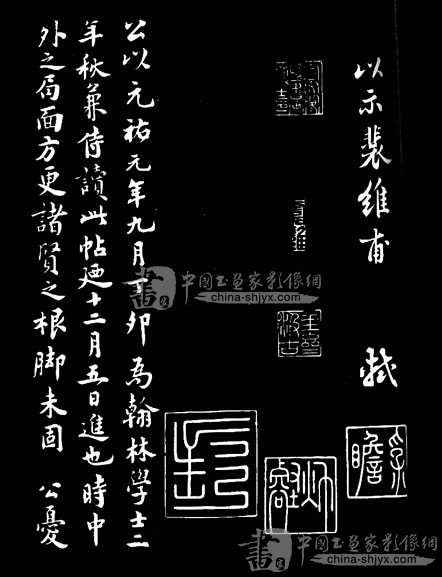 以示裴維甫 軾
公以元祐元年九月丁卯為翰林學士二
年秋兼侍讀此帖廼十二月五日進也時中
外之局面方更諸賢之根脚未固 公憂
書 中國书画家影像網
china-shjyx.com
書 中國书画家影像網
china-shjyx.com